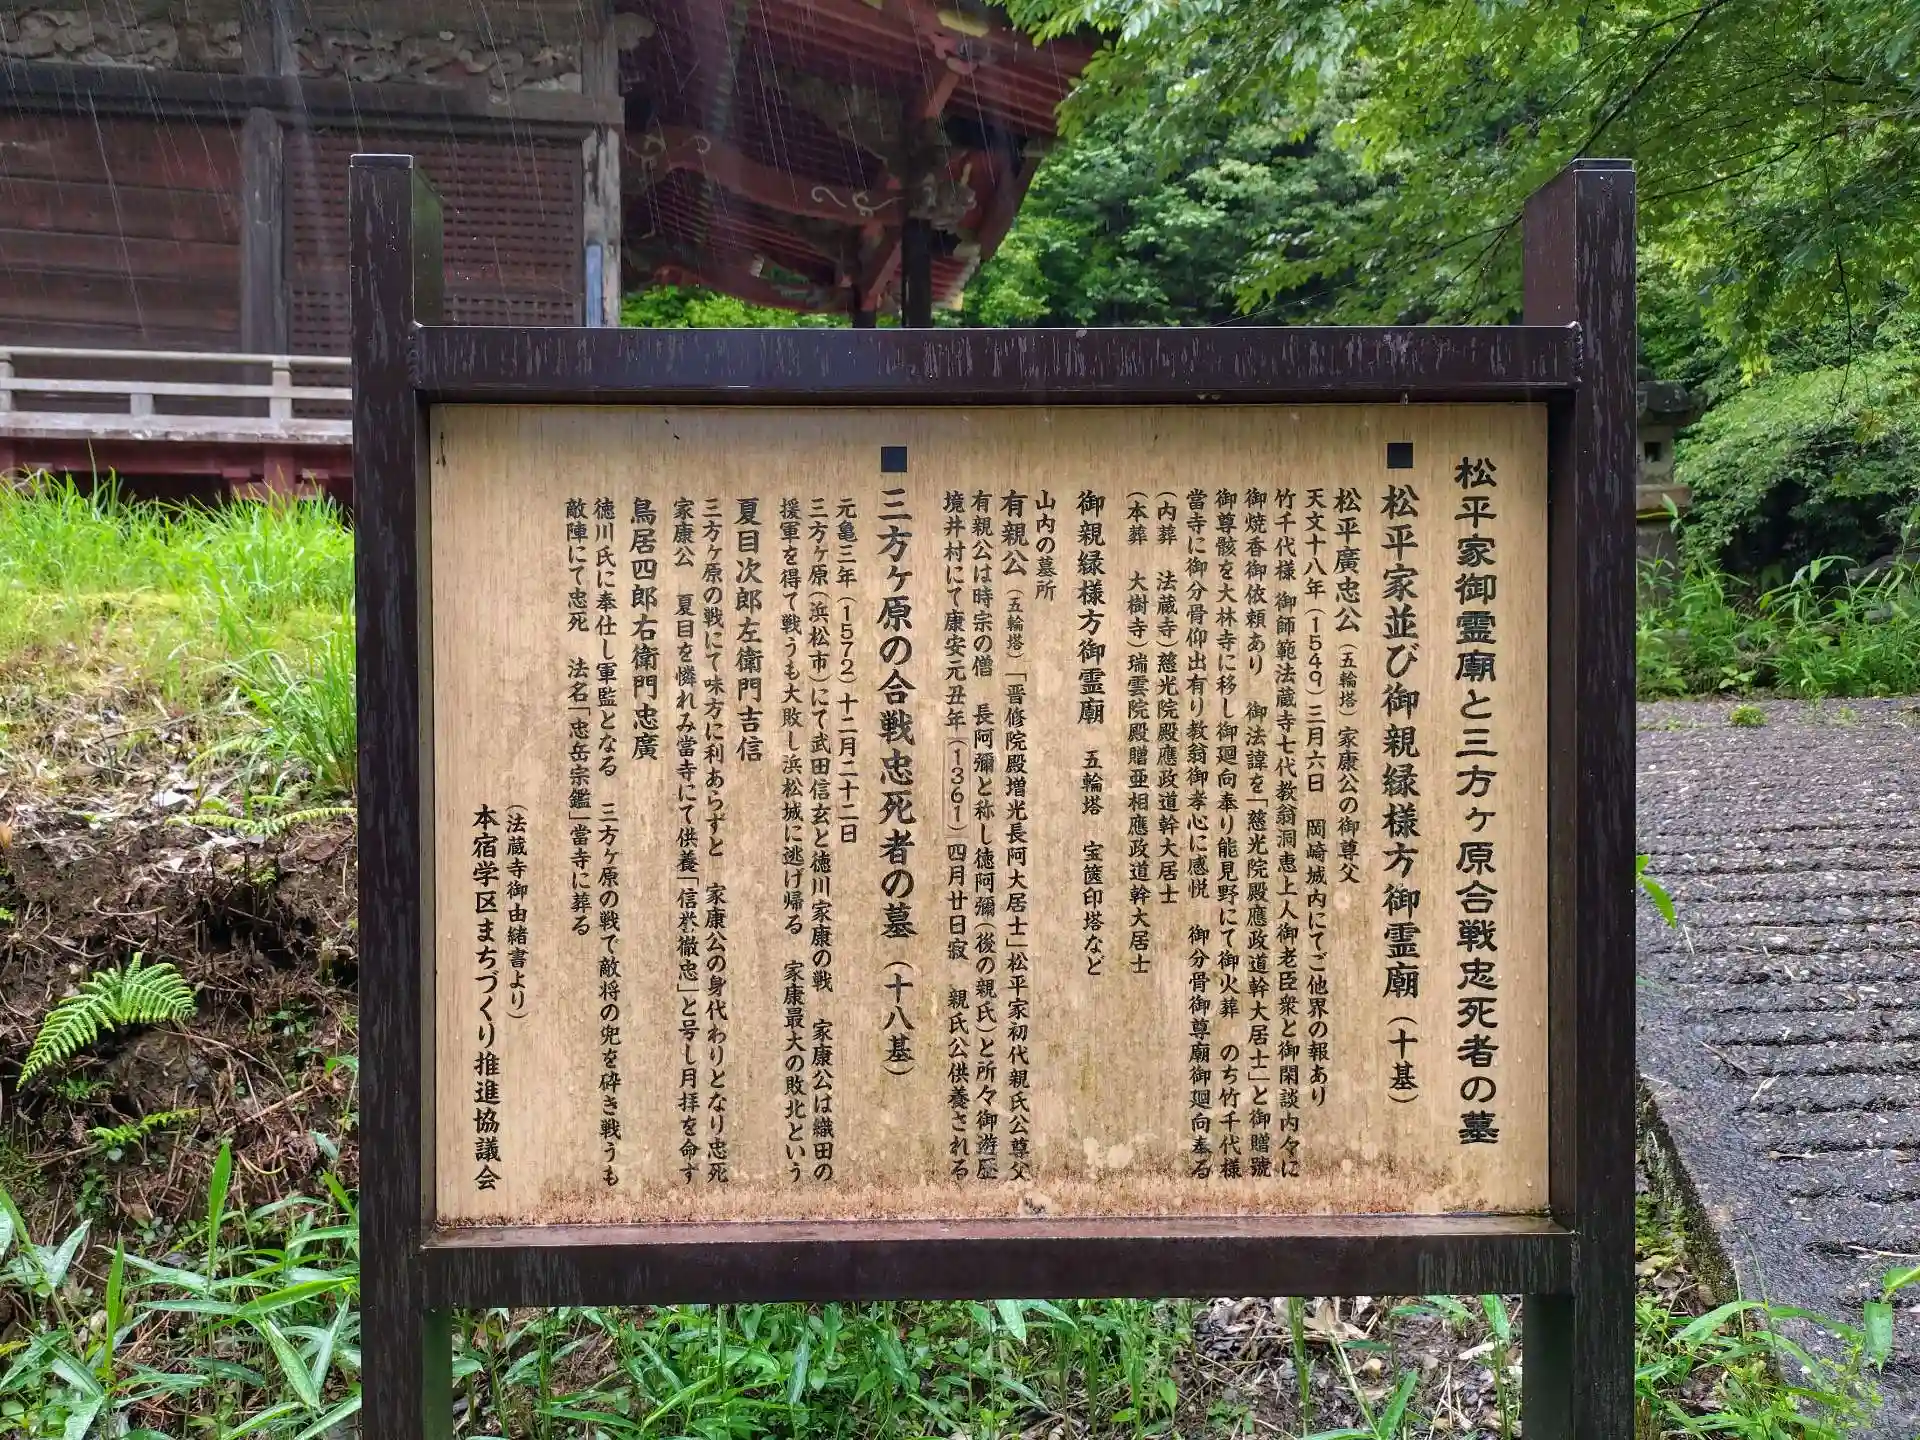 松平家御霊廟と三方ヶ原合戦忠死者の墓
■松平家並び御親縁様方御霊廟（十基）
松平廣忠公（五輪塔）家康公の御尊父
天文十八年（1549）三月六日　岡崎城内にてご他界の報あり
竹千代様 御師範法蔵寺七代教翁洞恵上人御老臣衆と御閑談内々に
御焼香御依頼あり　御法諱を「慈光院殿應政道幹大居士」と御贈號
御尊骸を大林寺に移し御廻向奉り能見野にて御火葬　のち竹千代様
當寺に御分骨仰出有り教翁御孝心に感悦　御分骨御尊廟御廻向奉る
（内葬　法蔵寺）慈光院殿應政道幹大居士
（本葬　大樹寺）瑞雲院殿贈亜相應政道幹大居士
御親縁様方御霊廟　五輪塔　宝篋印塔など
山内の墓所
有親公（五輪塔）「晋修院殿増光長阿大居士」松平家初代親氏公尊父
有親公は時宗の僧　長阿彌と称し徳阿彌（後の親氏）と所々御遊歴
境井村にて康安元丑年（1361）四月廿日寂　親氏公供養される
■三方ヶ原の合戦忠死者の墓（十八基）
元亀三年（1572）十二月二十二日
三方ヶ原（浜松市）にて武田信玄と徳川家康の戦　家康公は織田の
援軍を得て戦うも大敗し浜松城に逃げ帰る　家康最大の敗北という
夏目次郎左衛門吉信
三方ヶ原の戦にて味方に利あらずと　家康公の身代わりとなり忠死
家康公　夏目を憐れみ當寺にて供養「信誉徹忠」と号し月拝を命ず
鳥居四郎右衛門忠廣
徳川氏に奉仕し軍監となる　三方ヶ原の戦で敵将の兜を砕き戦うも
敵陣にて忠死　法名「忠岳宗鑑」當寺に葬る
（法蔵寺御由緒書より）
本宿学区まちづくり推進協議会